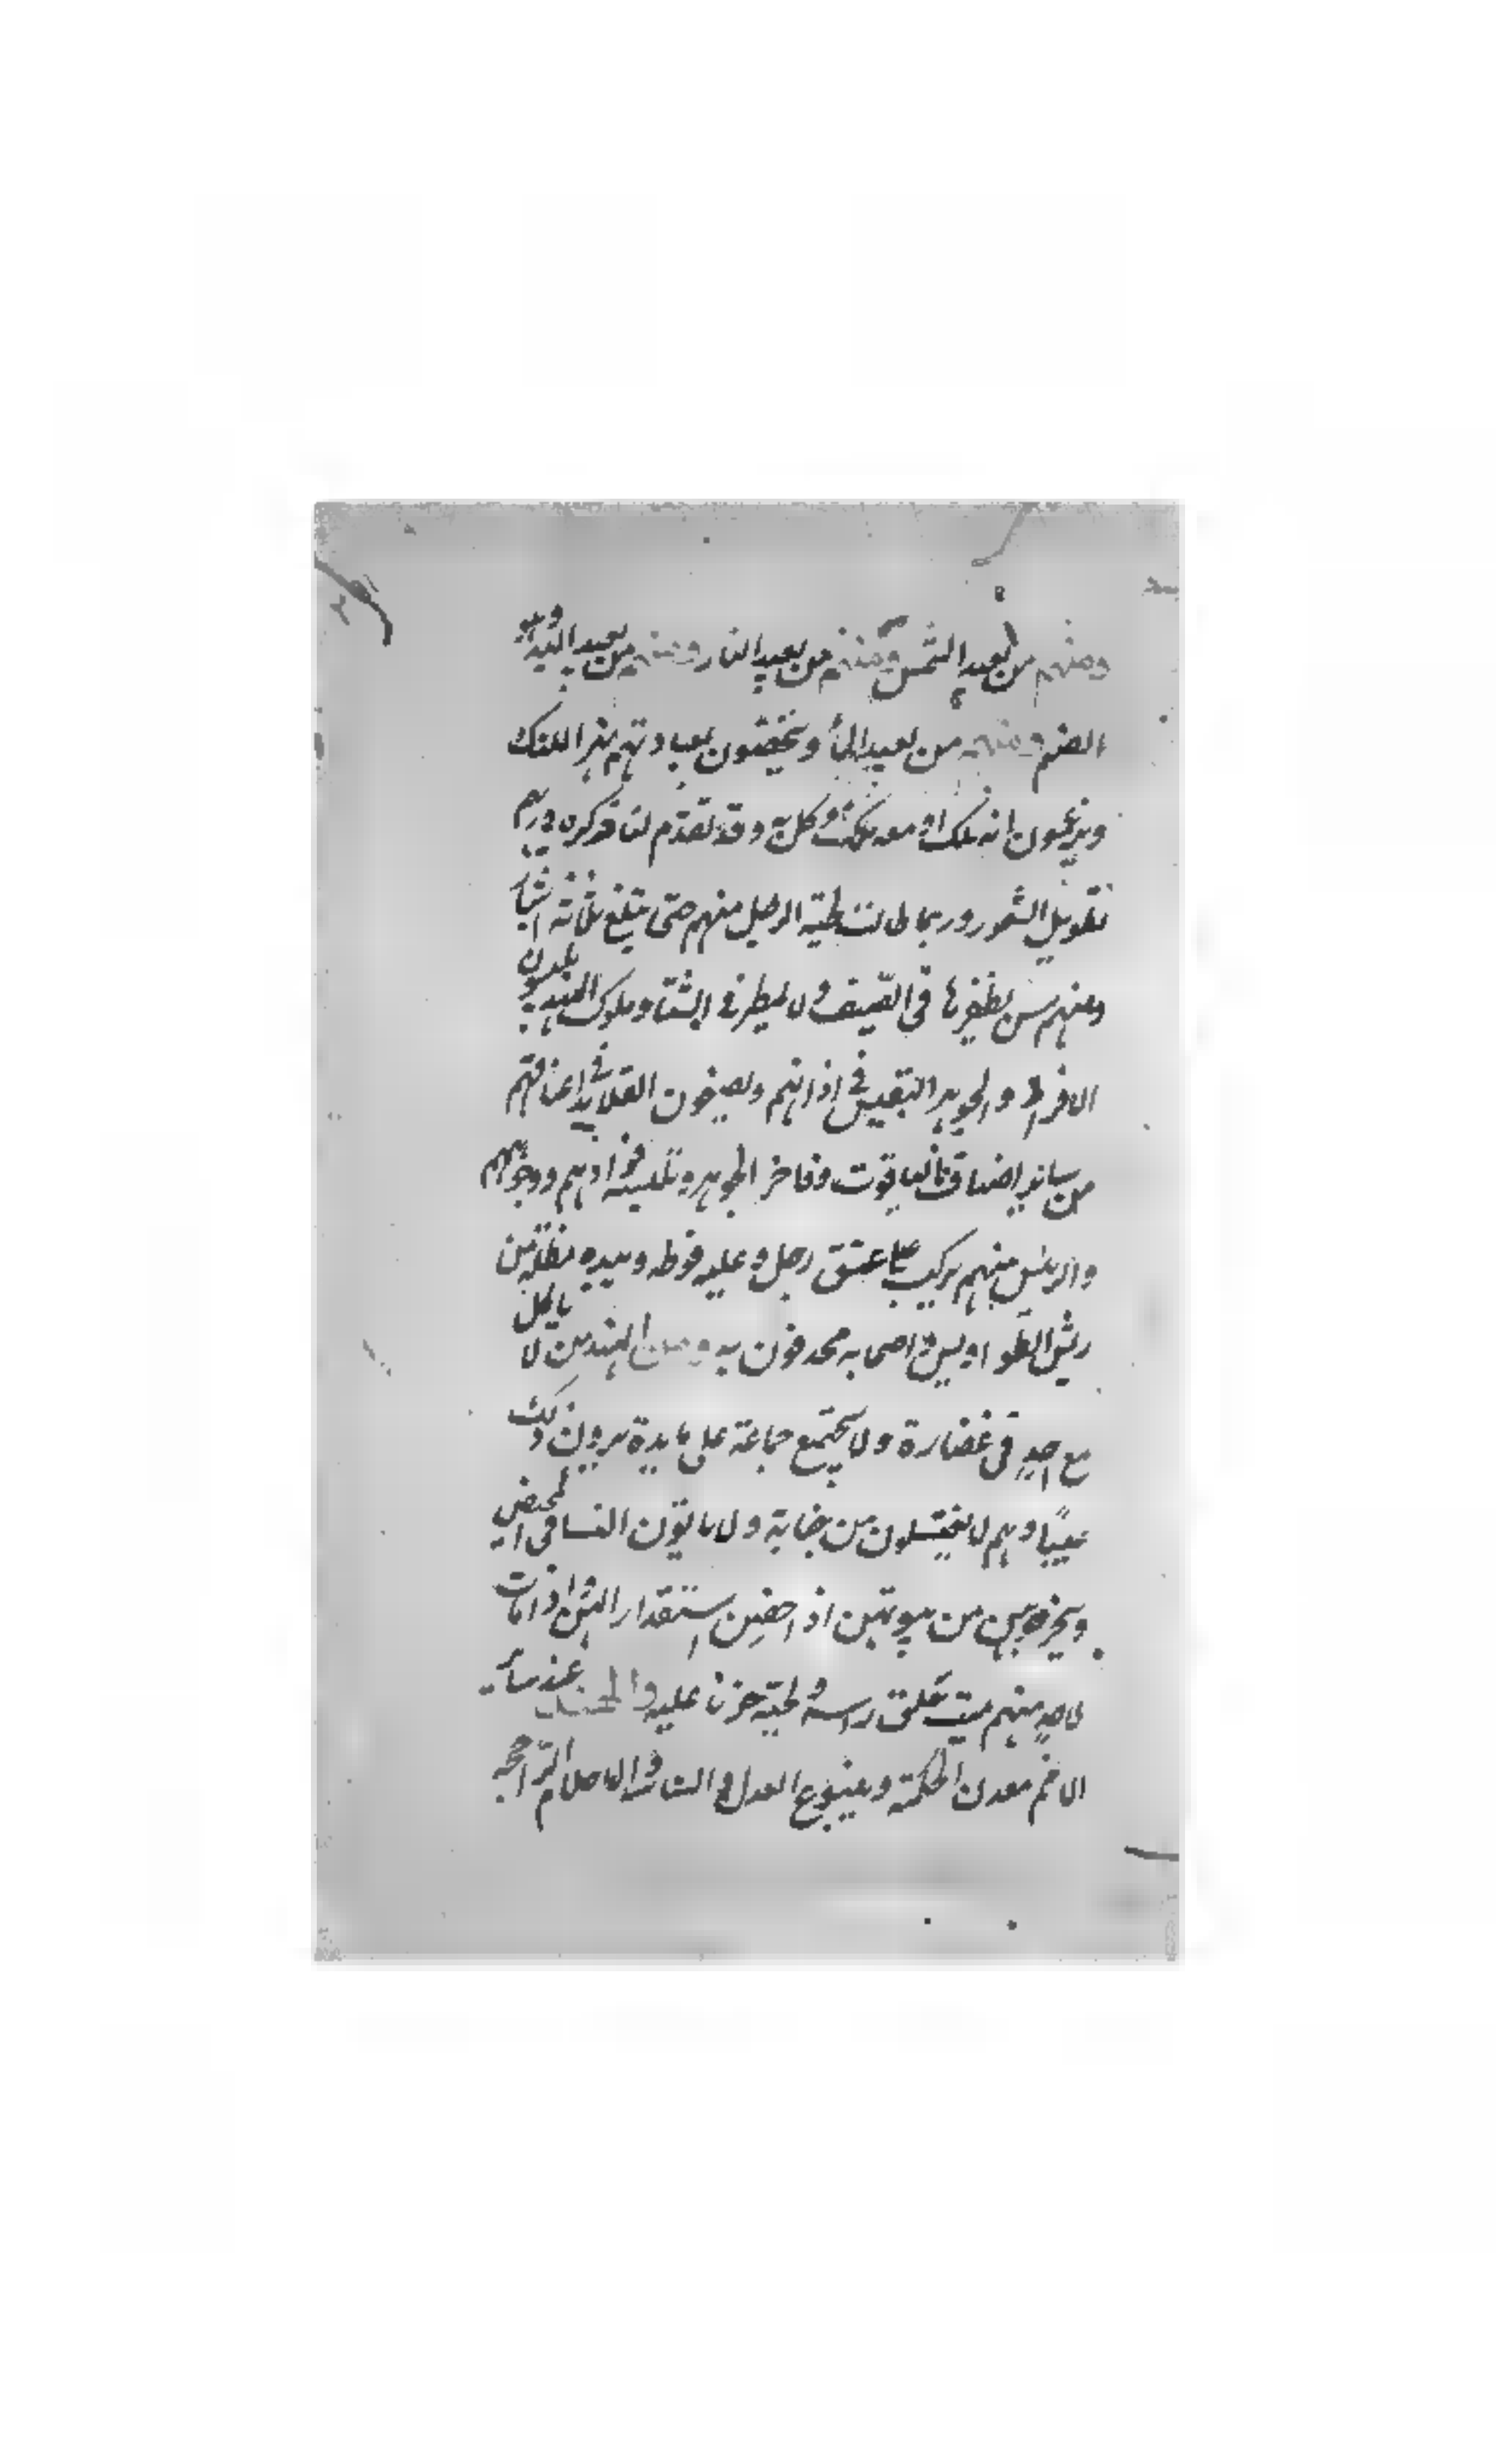 ومنهم من يعبد الشمس ومنهم من يعبد النار ومنهم من يعبد البد وهو
الصنم ومنهم من يعبد الماء ويخصّون بعبادتهم نهر الكنك
ويزعمون انه ملك او معه ملك وكل به وقد تقدم لنا ذكره
تطويل الشعور وربما طالت لحية الرجل منهم حتى تبلغ ثلاثة اشبار
ومنهم من يظفرها في الصيف ولا يمطر في الشتا وملوك الهند يلبسون
الاقراط والجوهر النفيس في اذانهم ويصيغون القلايد في اعناقهم
من ساير اصناف اليواقوت وفاخر الجوهر وتلبسه قوادهم ووجوههم
والرئيس منهم يركب على عنق رجل وعليه فوطه وبيده مظلة من
ريش الطواويس واصحابه محدقون به ومن الهند من لا ياكل
مع احد في غضارة ولا يجتمع جماعة على مايدة يرون ذلك
عيبًا وهم لا يغتسلون من جنابة ولا ياتون النسا في المحيض
ويخرجوهن من بيوتهن اذا حضن استقذار الهن واذا مات
لاحد منهم ميت حلق راسه ولحيته حزنا عليه والهند عند ساير
الامم معدن الحكمة وينبوع العدل والسياسة والاحلام الراجحة